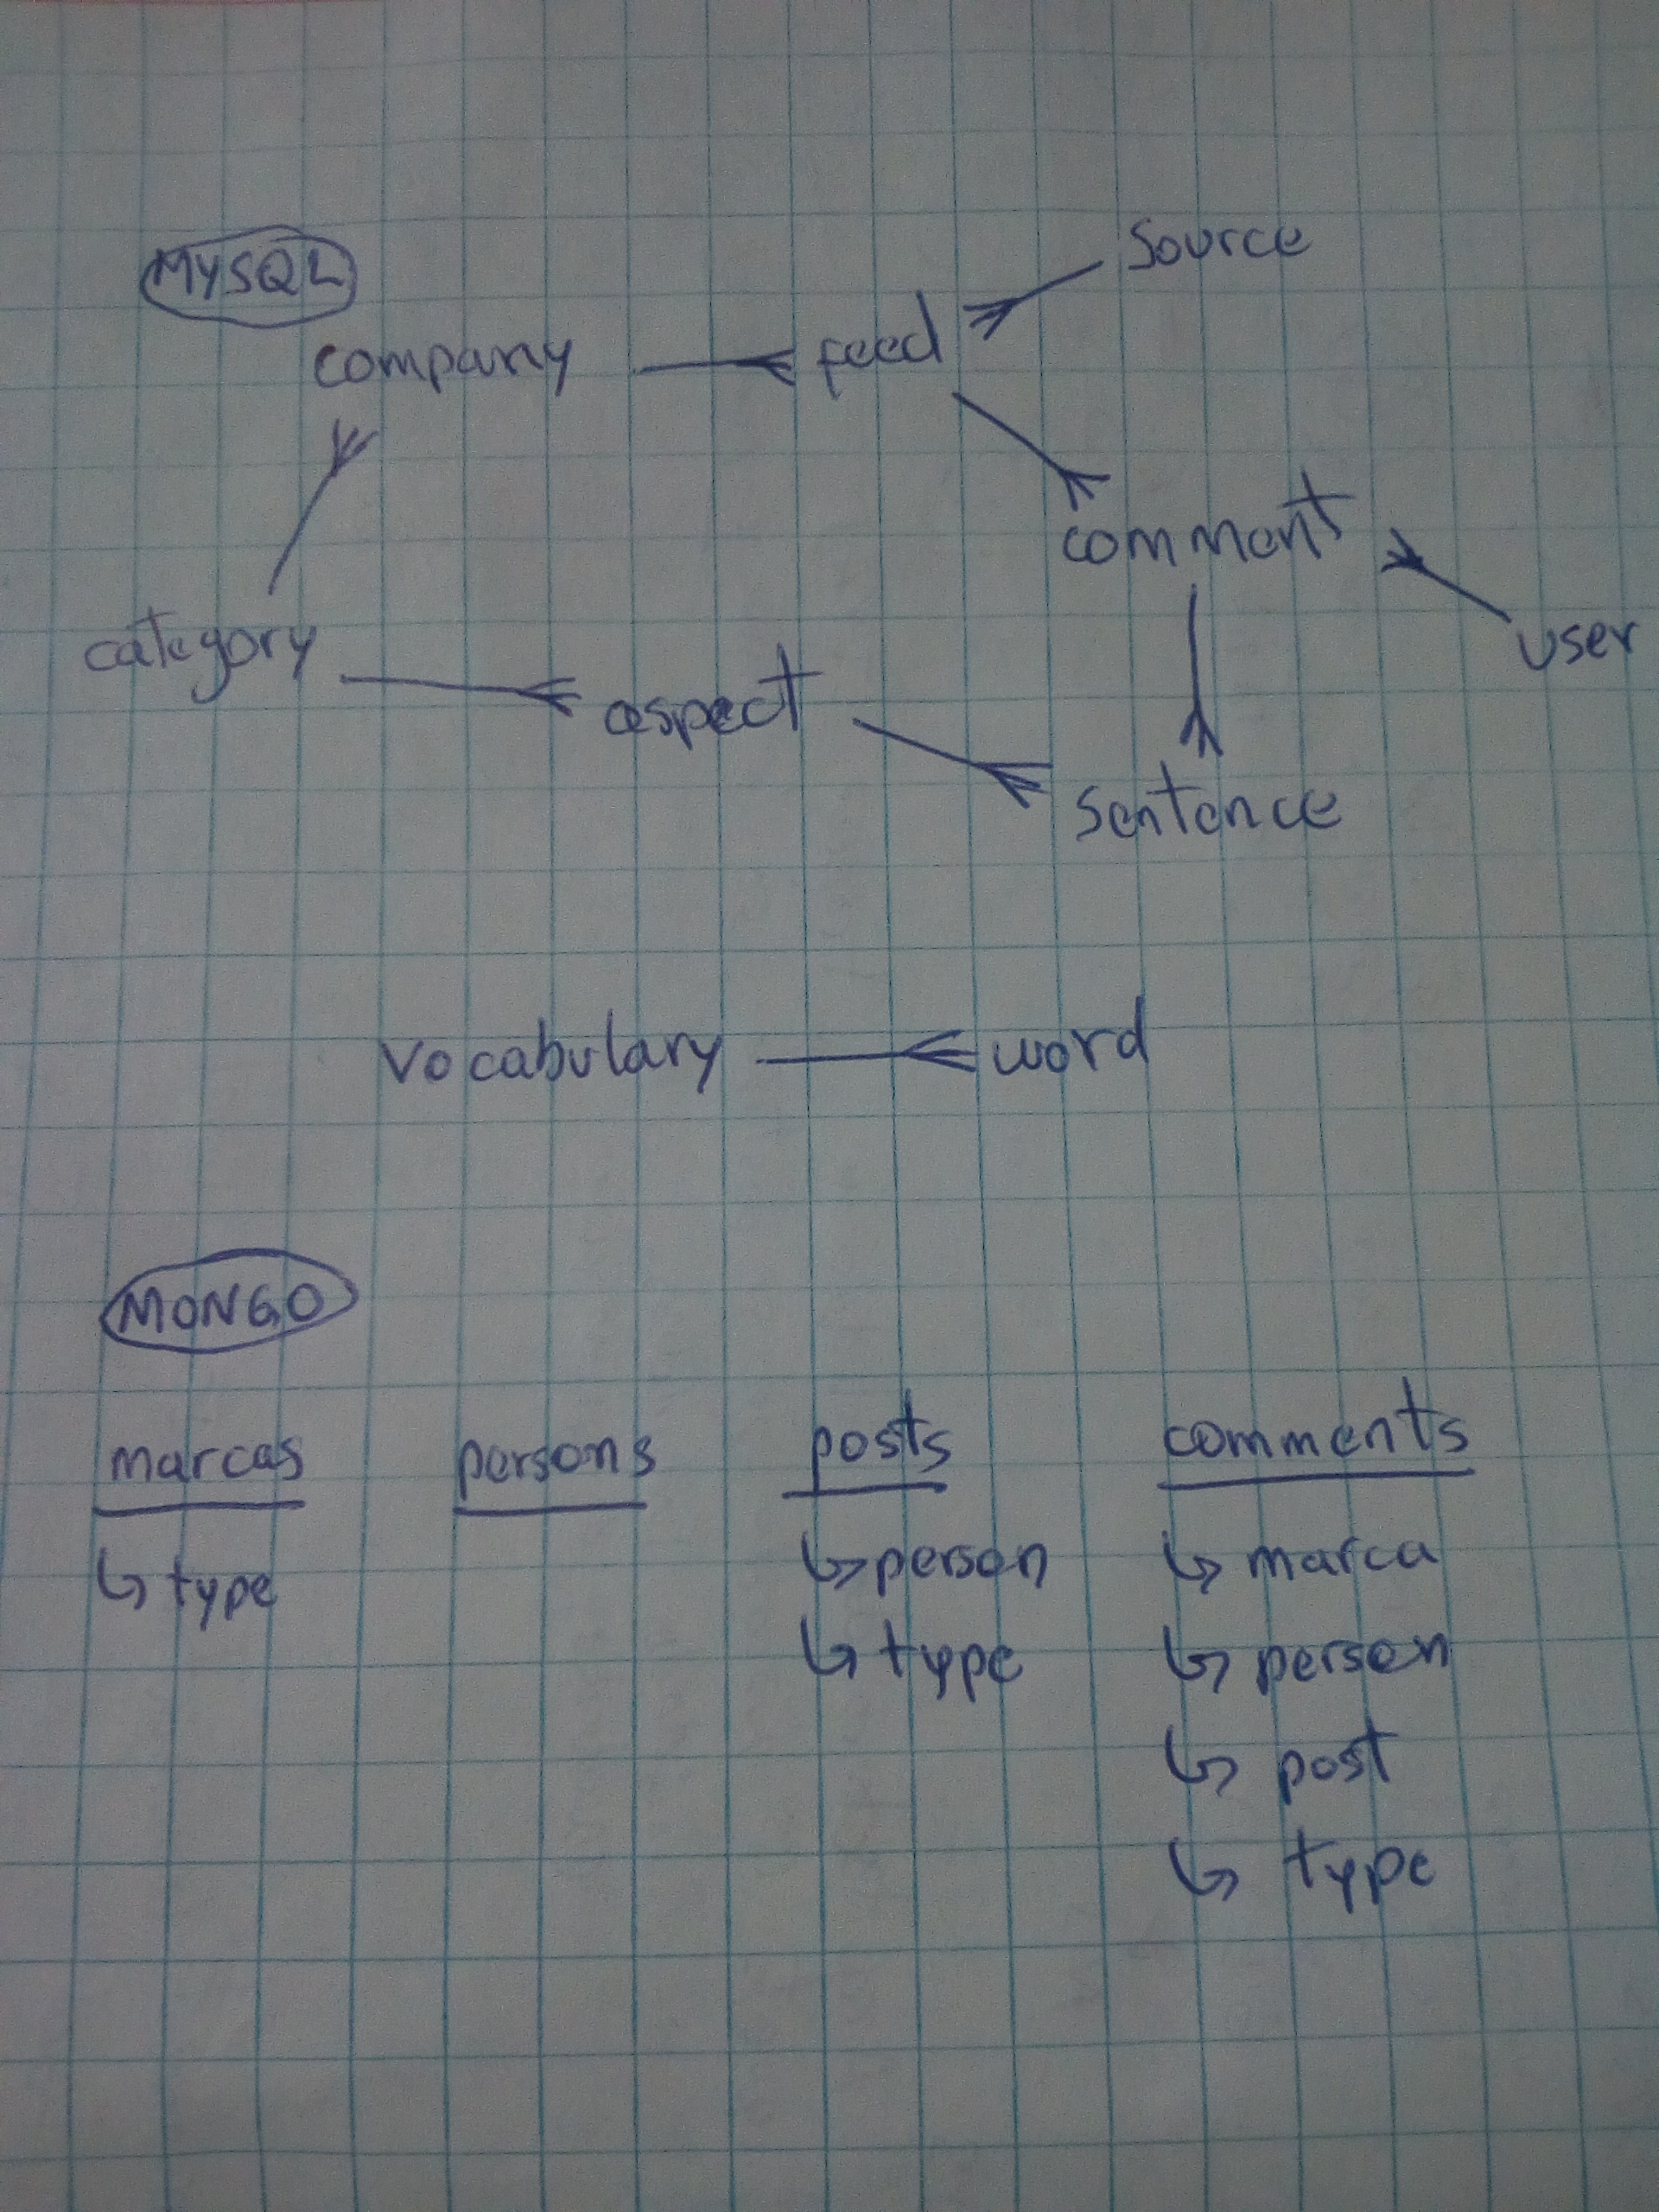 MYSQL
Source
company
feed
comment
user
category
aspect
sentence
vocabulary
word
MONGO
marcas persons posts comments
type person marca
type person
post
type